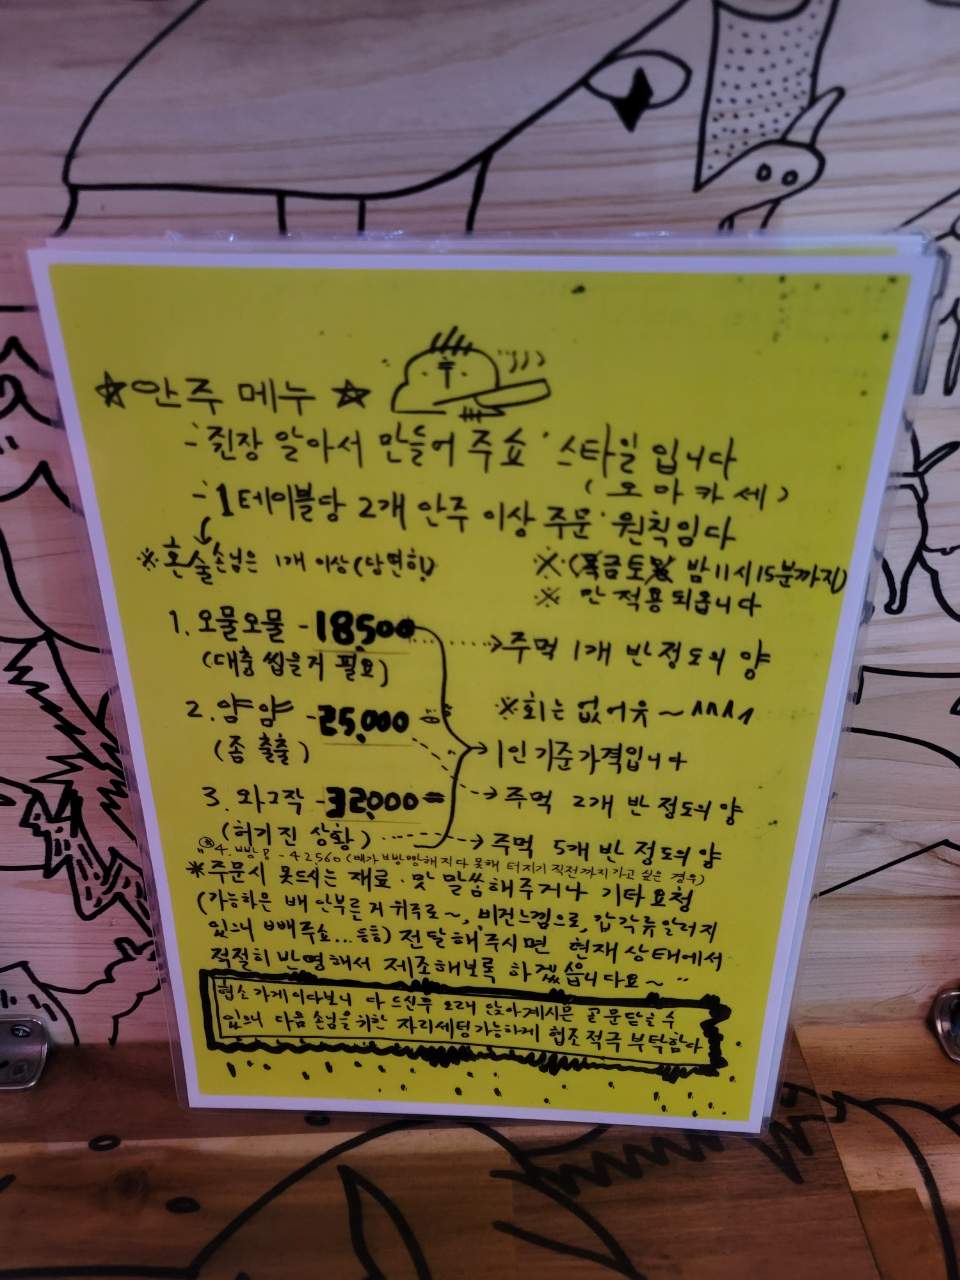 ☆안주 메뉴 ☆
- 쥔장 알아서 만들어 주쇼" 스타일 입니다
(오마카세)
- 1테이블당 2개 안주 이상 주문" 원칙임다
※ 혼술손님은 1개 이상(당연히)
금토 밤 11시 15분까지)
※ 만 적용되옵니다
1. 오물오물 - 18,500
→주먹 1개 반 정도의 양
(대충 씹을거 필요)
2. 얌얌 - 25,000
※회는 없어유~^^^
(좀 출출)
→1인 기준가격입니다
3. 와그작 - 32,000
→주먹 2개 반 정도의 양
(허기진 상황)
→주먹 5개 반 정도의 양
4. 빵빵 - 42560 (배가 빵빵해지다 못해 터지기 직전까지 가고 싶은 경우)
*주문시 못드시는 재료·맛 말씀해주거나 기타요청
(가능하은 배 안부른거 위주로~, 비건느낌으로, 갑각류알러지
있으니 빼주쇼... 등등) 전달해주시면 현재 상태에서
적절히 반영해서 제조해보록 하겠습니다요~"
협소가게이다보니 다 드신후 오래 앉아계시믄 골문닫을수
있으니 다음 손님을위한 자리세팅가능하게 협조 적극 부탁함다